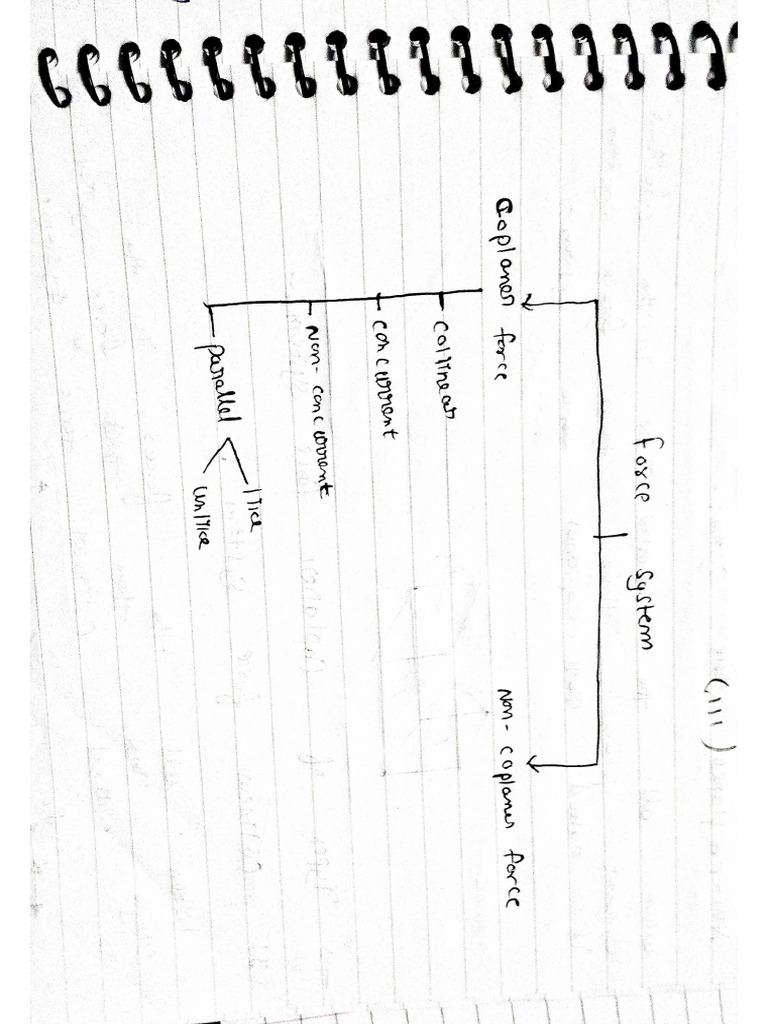 (111)
Force system
Coplaner force
Non-coplaner force
collinear
concurrent
Non-concurrent
parallel
like
unlike